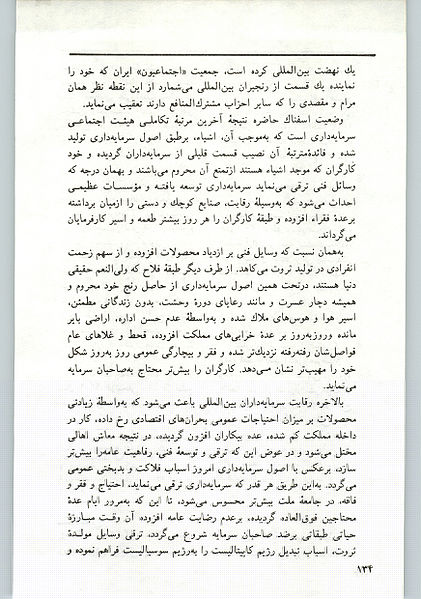 یك نهضت بین‌المللی کرده است، جمعیت «اجتماعیون» ایران که خود را
نماینده یك قسمت از رنجبران بین‌المللی می‌شمارد از این نقطه نظر همان
مرام و مقصدی را که سایر احزاب مشترك‌المنافع دارند تعقیب می‌نماید.
وضعیت اسفناك حاضره نتیجهٔ آخرین مرتبهٔ تکاملی هیئت اجتماعی
سرمایه‌داری است که به‌موجب آن، اشیاء، برطبق اصول سرمایه‌داری تولید
شده و فائده‌مترتبهٔ آن نصیب قسمت قلیلی از سرمایه‌داران گردیده و خود
کارگران که موجد اشیاء هستند ازتمتع آن محروم می‌باشند و بهمان درجه که
وسائل فنی ترقی می‌نماید سرمایه‌داری توسعه یافته و مؤسسات عظیمی
احداث می‌شود که به‌وسیلهٔ رقابت، صنایع کوچك و دستی را ازمیان برداشته
برعدهٔ فقراء افزوده و طبقهٔ کارگران را هر روز بیشتر طعمه و اسیر کارفرمایان
می‌گرداند.
به‌همان نسبت که وسایل فنی بر ازدیاد محصولات افزوده و از سهم زحمت
انفرادی در تولید ثروت می‌کاهد. از طرف دیگر طبقهٔ فلاح که ولی‌النعم حقیقی
دنیا هستند، درتحت همین اصول سرمایه‌داری از حاصل رنج خود محروم و
همیشه دچار عسرت و مانند رعایای دورهٔ وحشت، بدون زندگانی مطمئن،
اسیر هوا و هوس‌های ملاك شده و به‌واسطهٔ عدم حسن اداره، اراضی بایر
مانده وروزبه‌روز بر عدهٔ خرابی‌های مملکت افزوده، قحط و غلاهای عام
فواصل‌شان رفته‌رفته نزدیك‌تر شده و فقر و بیچارگی عمومی روز به‌روز شکل
خود را مهیب‌تر نشان می‌دهد. کارگران را بیش‌تر محتاج به‌صاحبان سرمایه
می‌نماید.
بالاخره رقابت سرمایه‌داران بین‌المللی باعث می‌شود که به‌واسطهٔ زیادتی
محصولات بر میزان احتیاجات عمومی بحران‌های اقتصادی رخ داده، کار در
داخله مملکت کم شده، عده بیکاران افزون گردیده، در نتیجه معاش اهالی
مختل می‌شود و در عوض این که ترقی و توسعهٔ فنی، رفاهیت عامه‌را بیش‌تر
سازد، برعکس با اصول سرمایه‌داری امروز اسباب فلاکت و بدبختی عمومی
می‌گردد. به‌این طریق هر قدر که سرمایه‌داری ترقی می‌نماید، احتیاج و فقر و
فاقه، در جامعهٔ ملت بیش‌تر محسوس می‌شود، تا این که به‌مرور ایام عدهٔ
محتاجین فوق‌العاده گردیده، برعدم رضایت عامه افزوده، آن وقت مبارزهٔ
حیاتی طبقاتی برضد صاحبان سرمایه شروع می‌گردد، ترقی وسایل مولدهٔ
ثروت، اسباب تبدیل رژیم کاپیتالیست را به‌رژیم سوسیالیست فراهم نموده و
۱۳۴